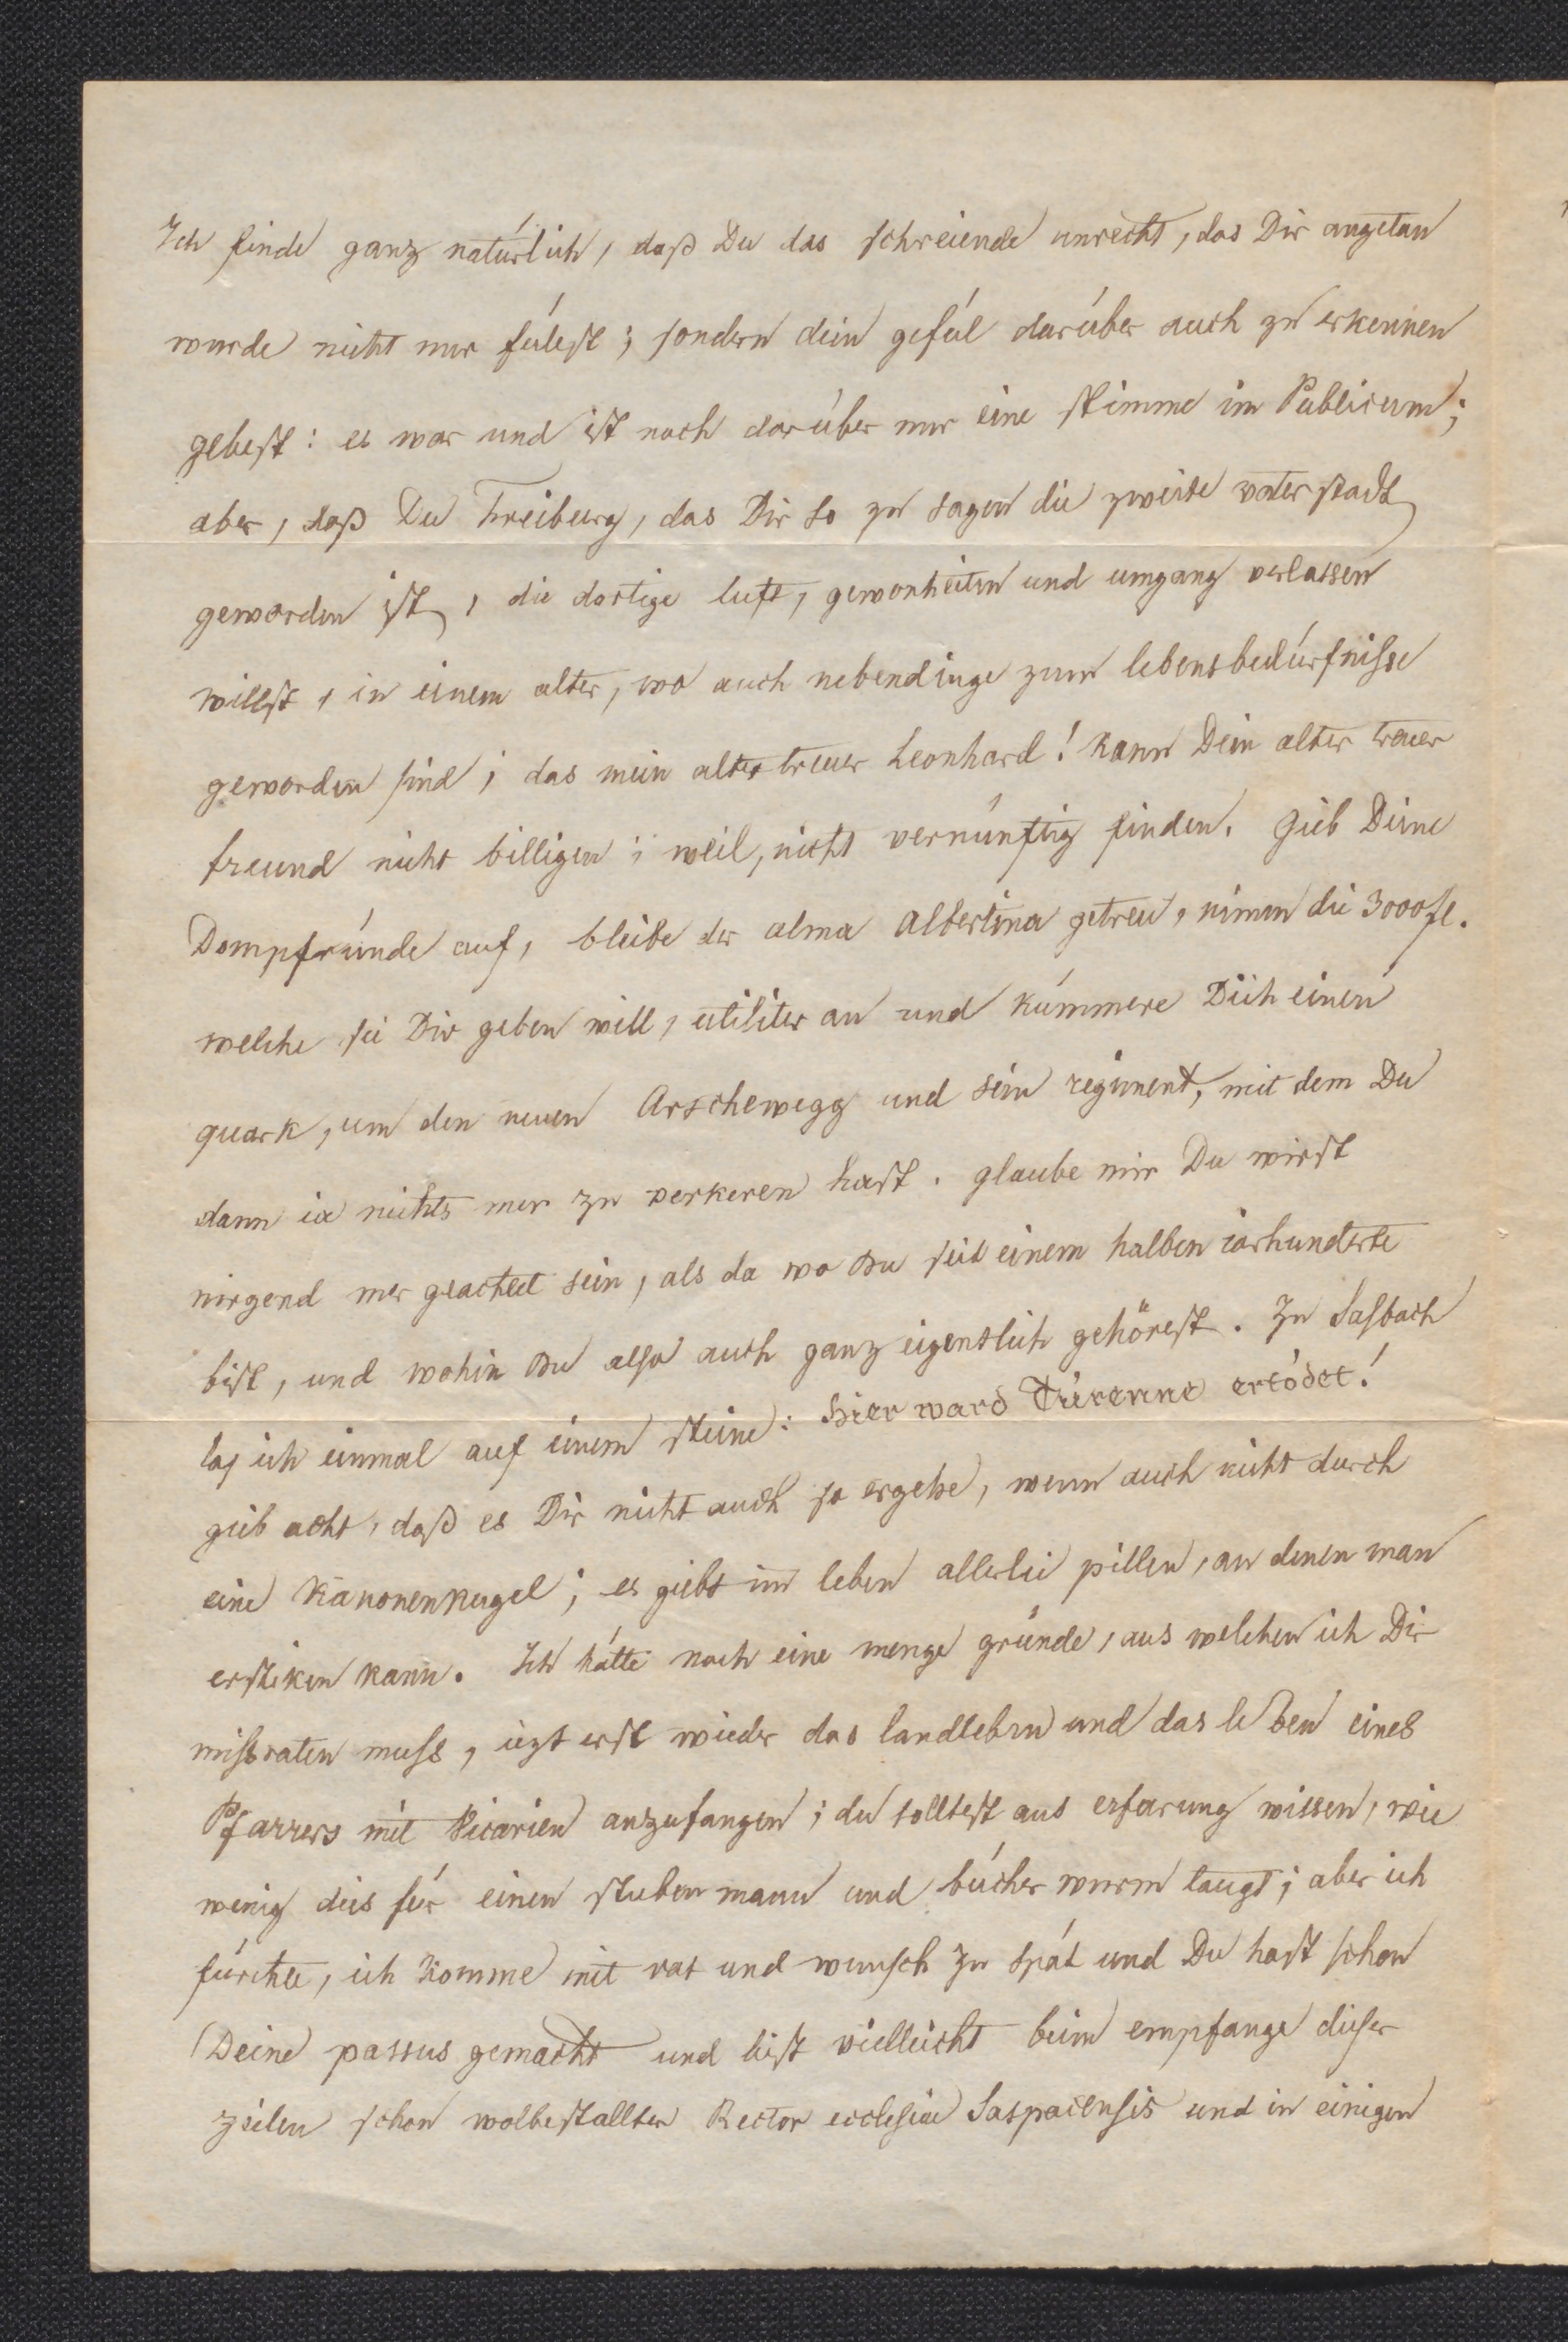 Ich finde ganz natúrlich, daß Du das schreiende unrecht, das Dir angetan
wurde nicht nur fúlest; sondern dein gefúl darúber auch zu erkennen
gebest: es war und ist noch darúber nur eine stimme im Publicum;
aber, daß Du Freiburg, das Dir so zu sagen die zweite vaterstadt
geworden ist, die dortige luft, gewonheiten und umgang verlassen
willst, in einem alter, wo auch nebendinge zum lebensbedúrfnisse
geworden sind; das mein alter treuer Leonhard! kann Dein alter treuer
freund nicht billigen; weil, nicht vernúnftig finden. Gieb Deine
Dompfrúnde auf, bleibe der alma Albertina getreu, nimm die 3000 fl.
welche sie Dir geben will, utiliter an und kúmmere Dich einen
quark, um den neuen Arschewegg und sein regiment, mit dem Du
dann ia nichts mer zu verkeren hast. glaube mir Du wirst
nirgend mer geachtet sein, als da wo Du seit einem halben iarhunderte
bist, und wohin Du also auch ganz eigentlich gehörest. Zu Sasbach
las ich einmal auf einem steine: Hier ward Túrenne ertódet!
gieb acht, daß es Dir nicht auch so ergehe, wenn auch nicht durch
eine Kanonenkugel; es giebt im leben allerlei pillen, an denen man
erstiken kann. Ich hátte noch eine menge grúnde, aus welchen ich Dir
missraten muss, iezt erst wieder das landleben und das leben eines
Pfarrers mit Vicarien anzufangen; du solltest aus erfarung wissen, wie
wenig dies fúr einen stubenmann und búcher wurm taugt; aber ich
fúrchte, ich komme mit rat und wunsch zu spát und Du hast schon
Deine passus gemacht und bist vielleicht beim empfange dieser
zeilen schon wolbestallter Rector ecclesiae Saspacensis und in einigen